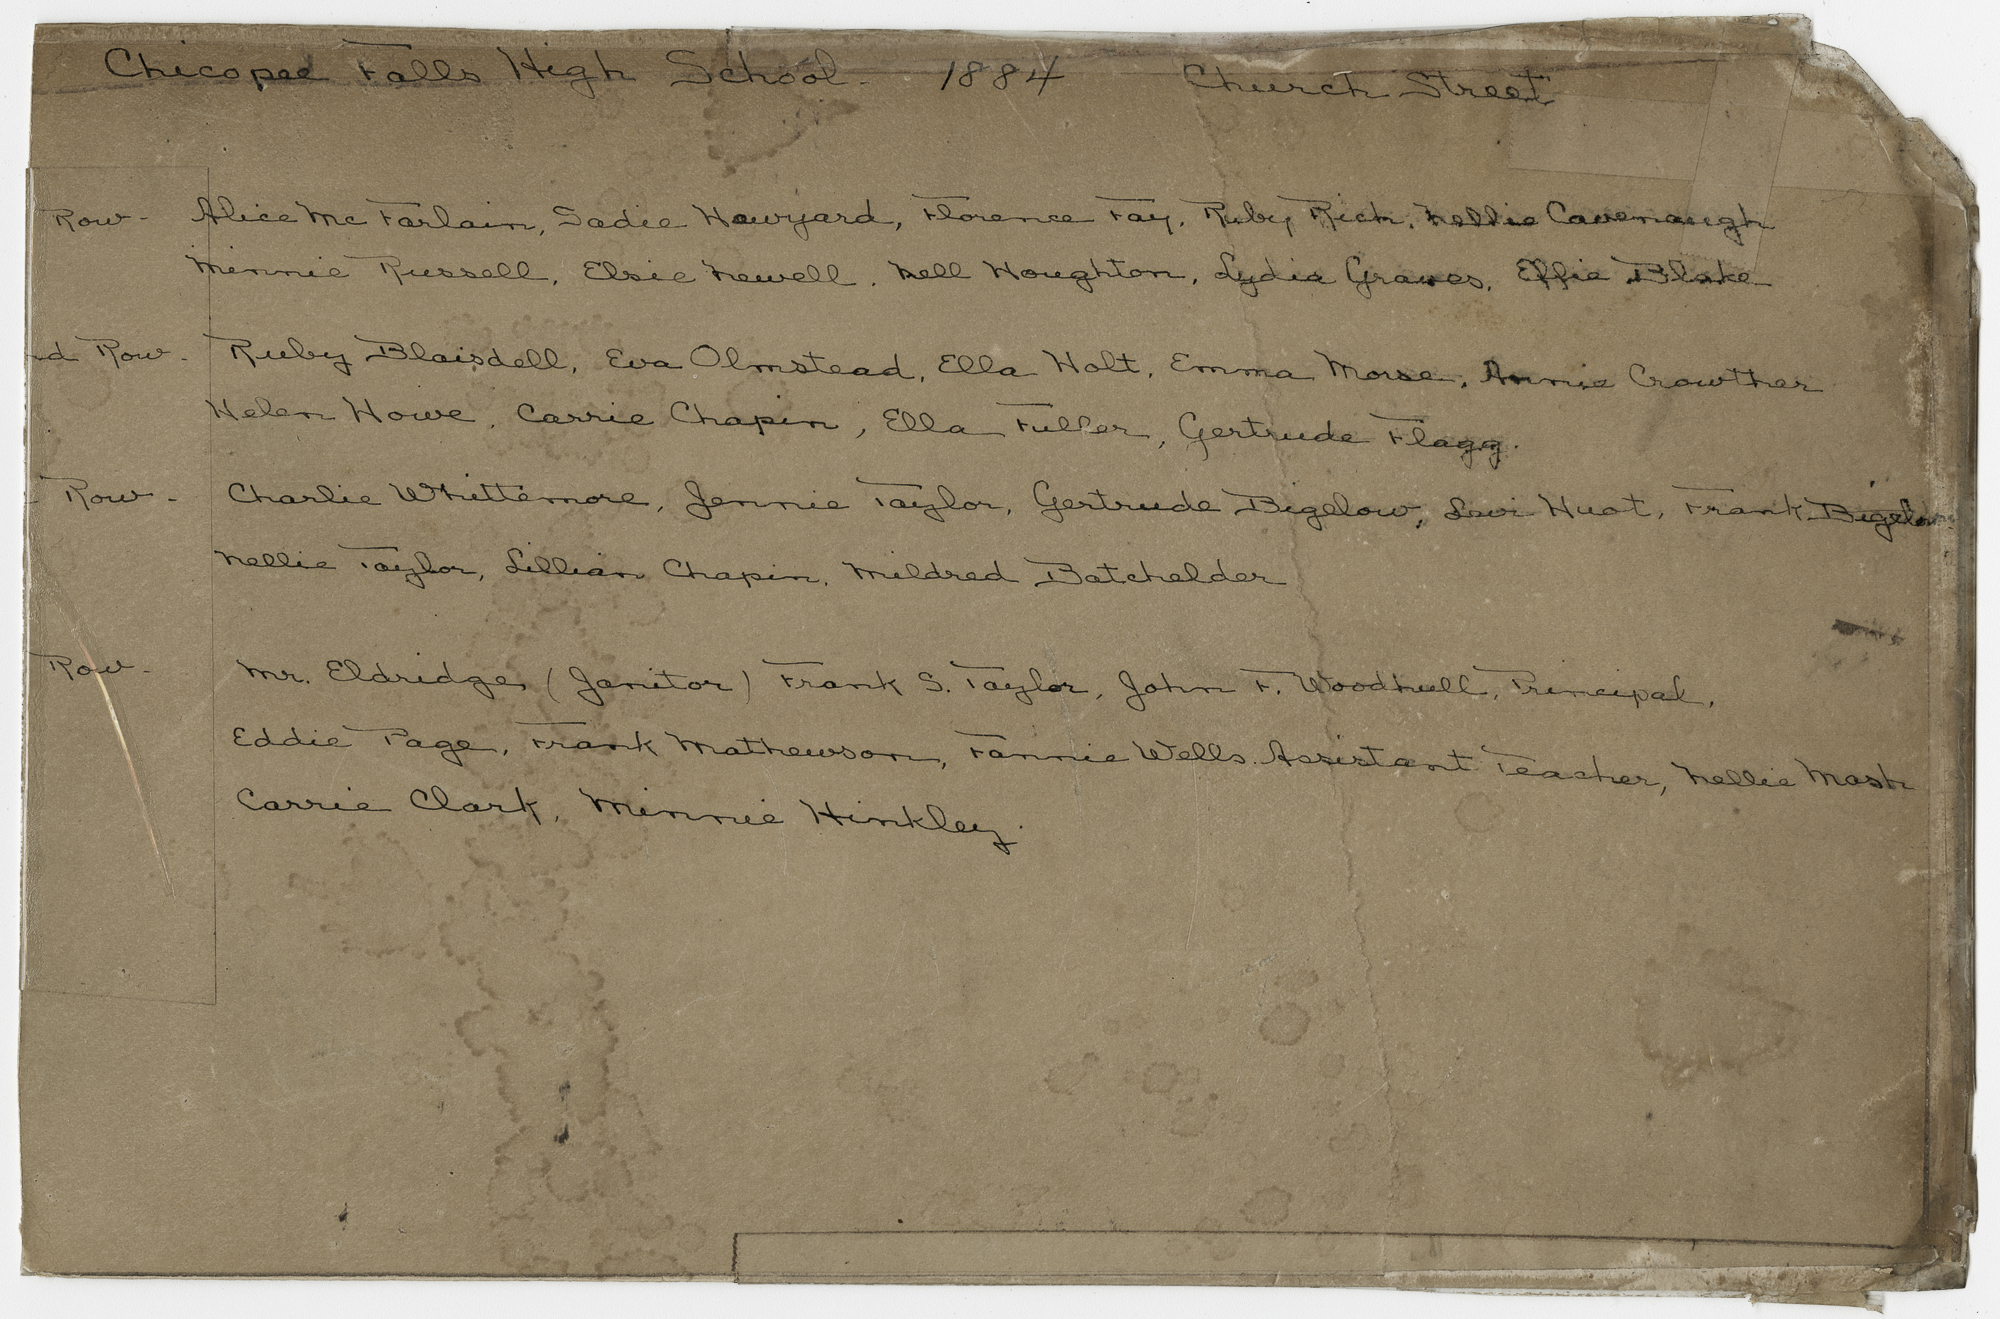 Chicopee Falls High School - 1884 Church Street
Row - Alice Mc Farlain, Sadie Howyard, Florence Fay, Ruby Rich, Nellie Cavenaugh
Minnie Russell, Elsie Newell, Nell Houghton, Lydia Graves, Effie Blake
nd Row - Ruby Blaisdell, Eva Olmstead, Ella Holt, Emma Morse, Annie Crowther
Helen Howe, Carrie Chapin, Ella Fuller, Gertrude Flagg.
Row - Charlie Whittemore, Jennie Taylor, Gertrude Bigelow, Levi Huot, Frank Bigelow
Nellie Taylor, Lillian Chapin, Mildred Batchelder
Row - Mr. Eldridge (Janitor) Frank S. Taylor, John F. Woodhull, Principal,
Eddie Page, Frank Mathewson, Fannie Wells. Assistant Teacher, Nellie Mosh
Carrie Clark, Minnie Hinkley.